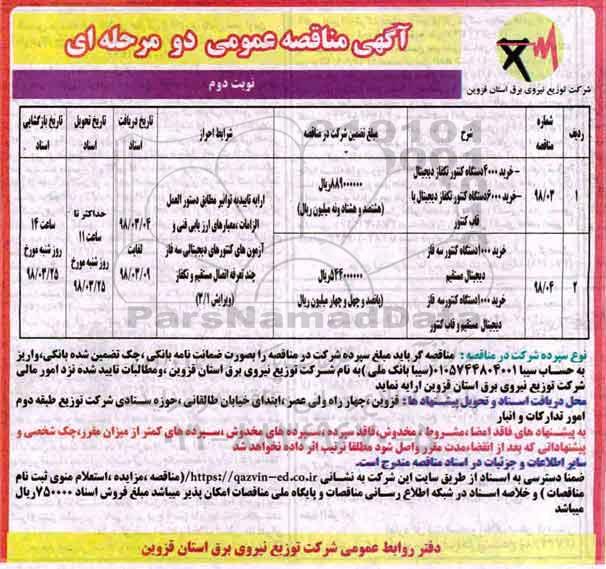 آگهی مناقصه عمومی دو مرحله ای
شرکت توزیع نیروی برق استان قزوین
نوبت دوم
ردیف
شماره مناقصه
شرح
مبلغ تضمین شرکت در مناقصه
شرایط احراز
تاریخ دریافت اسناد
تاریخ تحویل اسناد
تاریخ بازگشایی اسناد
۱
۹۸/۰۳
- خرید ۴۰۰۰دستگاه کنتور تکفاز دیجیتال
- خرید ۶۰۰۰دستگاه کنتور تکفاز دیجیتال با
قاب کنتور
۸۸۹۰۰۰۰۰۰ریال
(هشتصد و هشتاد ونه میلیون ریال)
۲
۹۸/۰۴
خرید ۱۰۰۰دستگاه کنتور سه فاز
دیجیتال مستقیم
خرید ۱۰۰۰دستگاه کنتور سه فاز
دیجیتال مستقیم و قاب کنتور
۵۴۴۰۰۰۰۰۰ریال
(پانصد و چهل و چهار میلیون ریال)
ارایه تاییدیه توانیر مطابق دستور العمل
الزامات،معیارهای ارزیابی فنی و
آزمون های کنتورهای دیجیتالی سه فاز
چند تعرفه اتصال مستقیم و تکفاز
(ویرایش ۳/۱)
۹۸/۰۳/۰۴
لغایت
۹۸/۰۳/۰۹
حداکثر تا
ساعت ۱۱
روز شنبه مورخ
۹۸/۰۳/۲۵
ساعت ۱۴
روز شنبه مورخ
۹۸/۰۳/۲۵
ParsNamadData
نوع سپرده شرکت در مناقصه : مناقصه گر باید مبلغ سپرده شرکت در مناقصه را بصورت ضمانت نامه بانکی ،چک تضمین شده بانکی،واریز
به حساب سیبا ۰۱۰۵۷۴۴۸۰۴۰۰۱(سیبا بانک ملی ) به نام شرکت توزیع نیروی برق استان قزوین ،ومطالبات تایید شده نزد امور مالی
شرکت توزیع نیروی برق استان قزوین ارایه نماید
محل دریافت اسناد و تحویل پیشنهاد ها : قزوین ،چهار راه ولی عصر،ابتدای خیابان طالقانی ،حوزه ستادی شرکت توزیع طبقه دوم
امور تدارکات و انبار
به پیشنهاد های فاقد امضا،مشروط ، مخدوش،فاقد سپرده ،سپرده های مخدوش ،سپرده های کمتر از میزان مقرر،چک شخصی و
پیشنهاداتی که بعد از انقضاء،مدت مقرر واصل شود مطلقا ترتیب اثر داده نخواهد شد
سایر اطلاعات و جزئیات در اسناد مناقصه مندرج است.
ضمنا دسترسی به اسناد از طریق سایت این شرکت به نشانی https://qazvin-ed.co.ir/(مناقصه ،مزایده ،استعلام منوی ثبت نام
مناقصات ) و خلاصه اسناد در شبکه اطلاع رسانی مناقصات و پایگاه ملی مناقصات امکان پذیر میباشد مبلغ فروش اسناد ۷۵۰۰۰۰ریال
میباشد
دفتر روابط عمومی شرکت توزیع نیروی برق استان قزوین